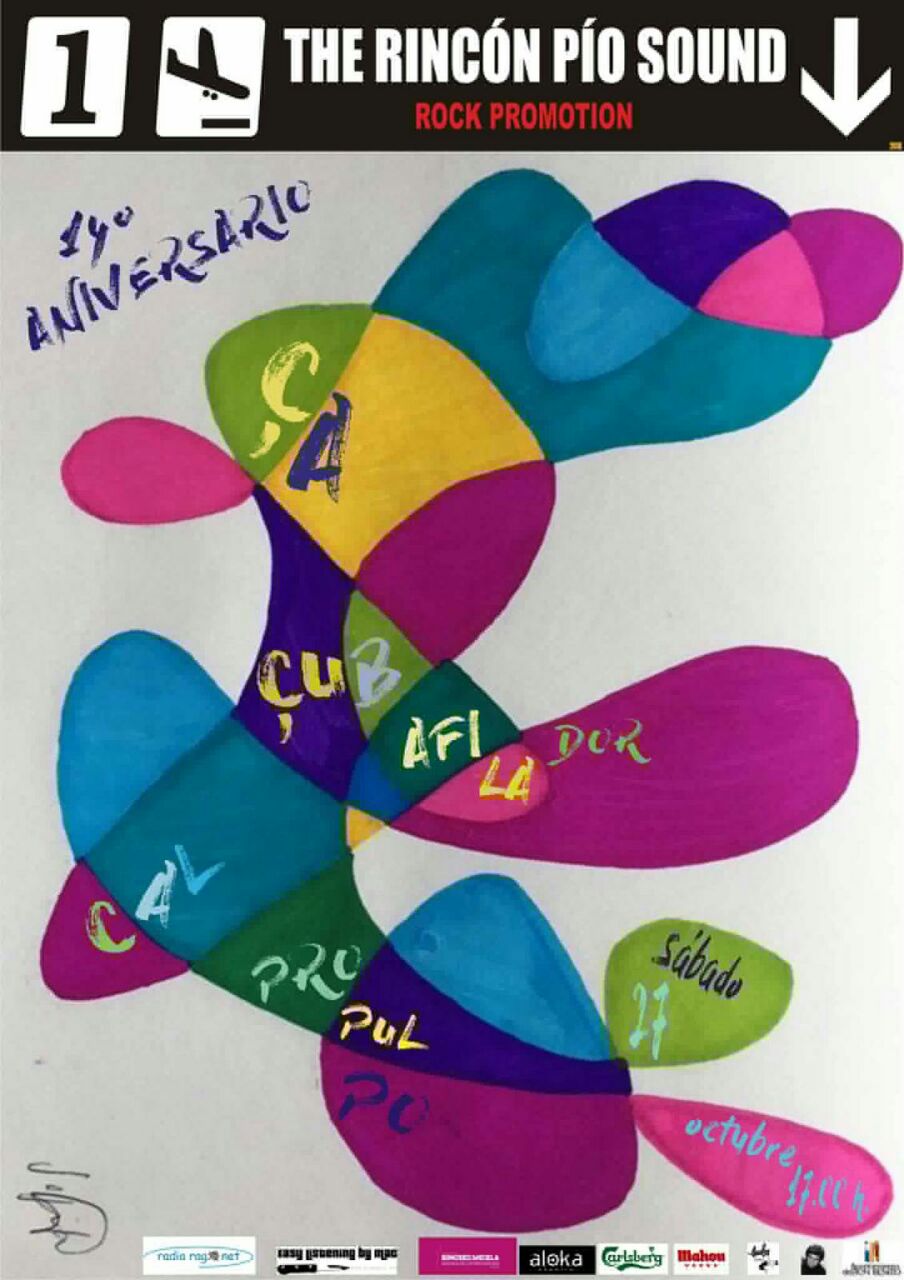 1
THE RINCÓN PÍO SOUND
ROCK PROMOTION
14º
ANIVERSARIO
ÇA
ÇUB
AFI
LA
DOR
CAL
PRO
PUL
PO
sábado
27
octubre
17.00 h.
radio rag net
EASY LISTENING BY MPC
aloka
Carlsberg
Mahou